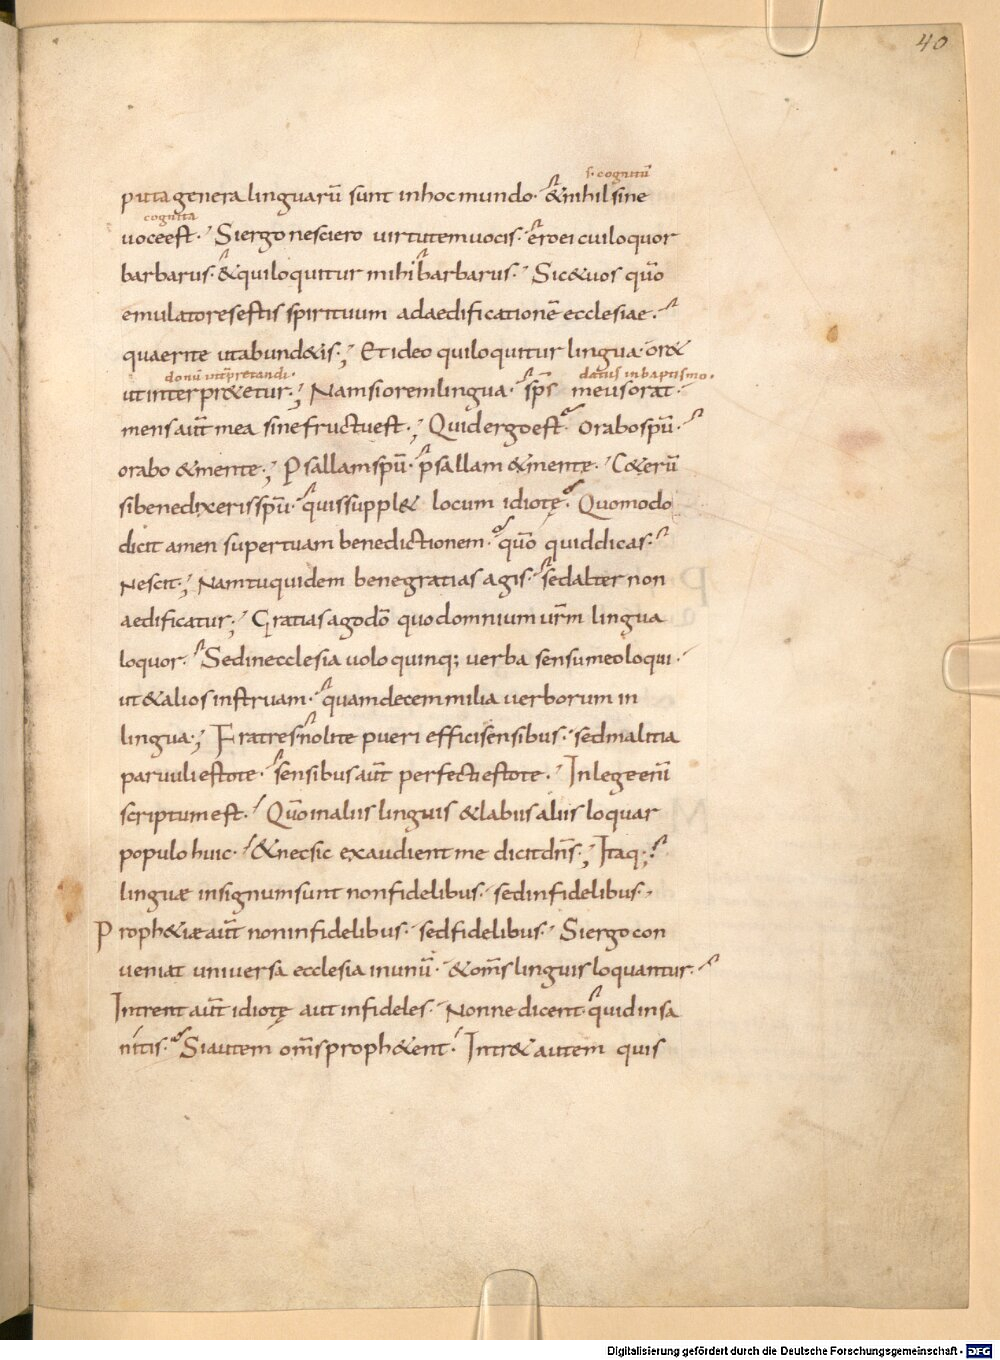 40
s· cognitū
puta genera linguarū sunt in hoc mundo· & nihil sine
cognita
uoce est· Si ergo nesciero uirtutem uocis· ero ei cui loquor
barbarus· & qui loquitur mihi barbarus· Sic & uos quō
emulatores estis spirituum ad aedificationē ecclesiae·
quaerite ut abund&is·; Et ideo qui loquitur lingua· or&
donū int̄pretandi· datus in baptismo·
ut interpr&etur·; Nam si orem lingua· sp̄s meus orat·
mens aut̄ mea sine fructu est·; Quid ergo est· Orabo spū·
orabo & mente·; Psallam spū· psallam & mente· C&erū
si benedixeris spū· quis suppl& locum idiotę· Quomodo
dicit amen super tuam benedictionem· quō quid dicas·
Nescit·; Nam tu quidem bene gratias agis· sed alter non
aedificatur·; Gratias ago dō quod omnium ur̄m lingua
loquor· Sed in ecclesia uolo quinq; uerba sensu meo loqui·
ut & alios instruam· quam decem milia uerborum in
lingua·; Fratres nolite pueri effici sensibus· sed malitia
paruuli estote· sensibus aut̄ perfecti estote· In lege enī
scriptum est· Qm̄ in aliis linguis & labiis aliis loquar
populo huic· & nec sic exaudient me dicit dn̄s·; Itaq·;
linguæ in signum sunt non fidelibus· sed infidelibus·
Proph&iæ aut̄ non infidelibus· sed fidelibus· Si ergo con
ueniat uniuersa ecclesia in unū· & om̄s linguis loquantur·
Intrent aut̄ idiotę aut infideles· Nonne dicent quid insa
nitis· Si autem om̄s proph&ent· Intr& autem quis
Digitalisierung gefördert durch die Deutsche Forschungsgemeinschaft - DFG